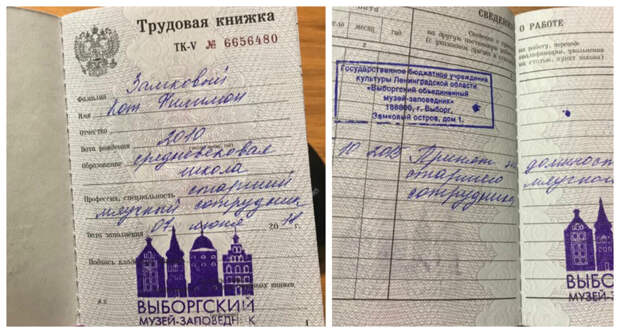 Трудовая книжка
ТК-V № 6656480
Фамилия Замковый
Имя Кот Филимон
Отчество
Дата рождения 2010
Образование средневековая
школа
Профессия, специальность старший
мяучный сотрудник
Дата заполнения 07 июня 2018 г.
Подпись
ВЫБОРГСКИЙ
МУЗЕЙ-ЗАПОВЕДНИК
СВЕДЕНИЯ
О РАБОТЕ
Дата
число месяц год
на другую постоянную
(с указанием причин
Государственное бюджетное учреждение
культуры Ленинградской области
«Выборгский объединенный
музей-заповедник»
188800, г. Выборг,
Замковый остров, дом 1.
10 2015 Принят на должност
старшего мяучног
сотрудника
ВЫБО
МУЗЕЙ-